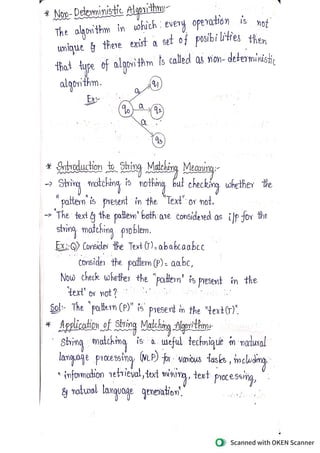 * Non-Deterministic Algorithm:-
The algorithm in which every operation is not
unique & there exist a set of posibilities then
that type of algorithm is called as non-deterministic
algorithm.
Ex:-
q0 a q1
a q2
q3
* Introduction to String Matching Meaning:-
→ String matching is nothing but checking whether the
"pattern" is present in the "Text" or not.
→ "The text & the pattern" both are considered as i/p for the
string matching problem.
Ex:-Q) Consider the Text(T)=ababcaabcc
consider the pattern(P)=aabc,
Now check whether the "pattern" is present in the
"text" or not?
Sol:- The "pattern(P)" is present in the "text(T)".
* Application of String Matching Algorithm:-
String matching is a useful technique in natural
language processing (NLP) for various tasks, including
information retrieval, text mining, text processing,
& natural language generation".
Scanned with OKEN Scanner